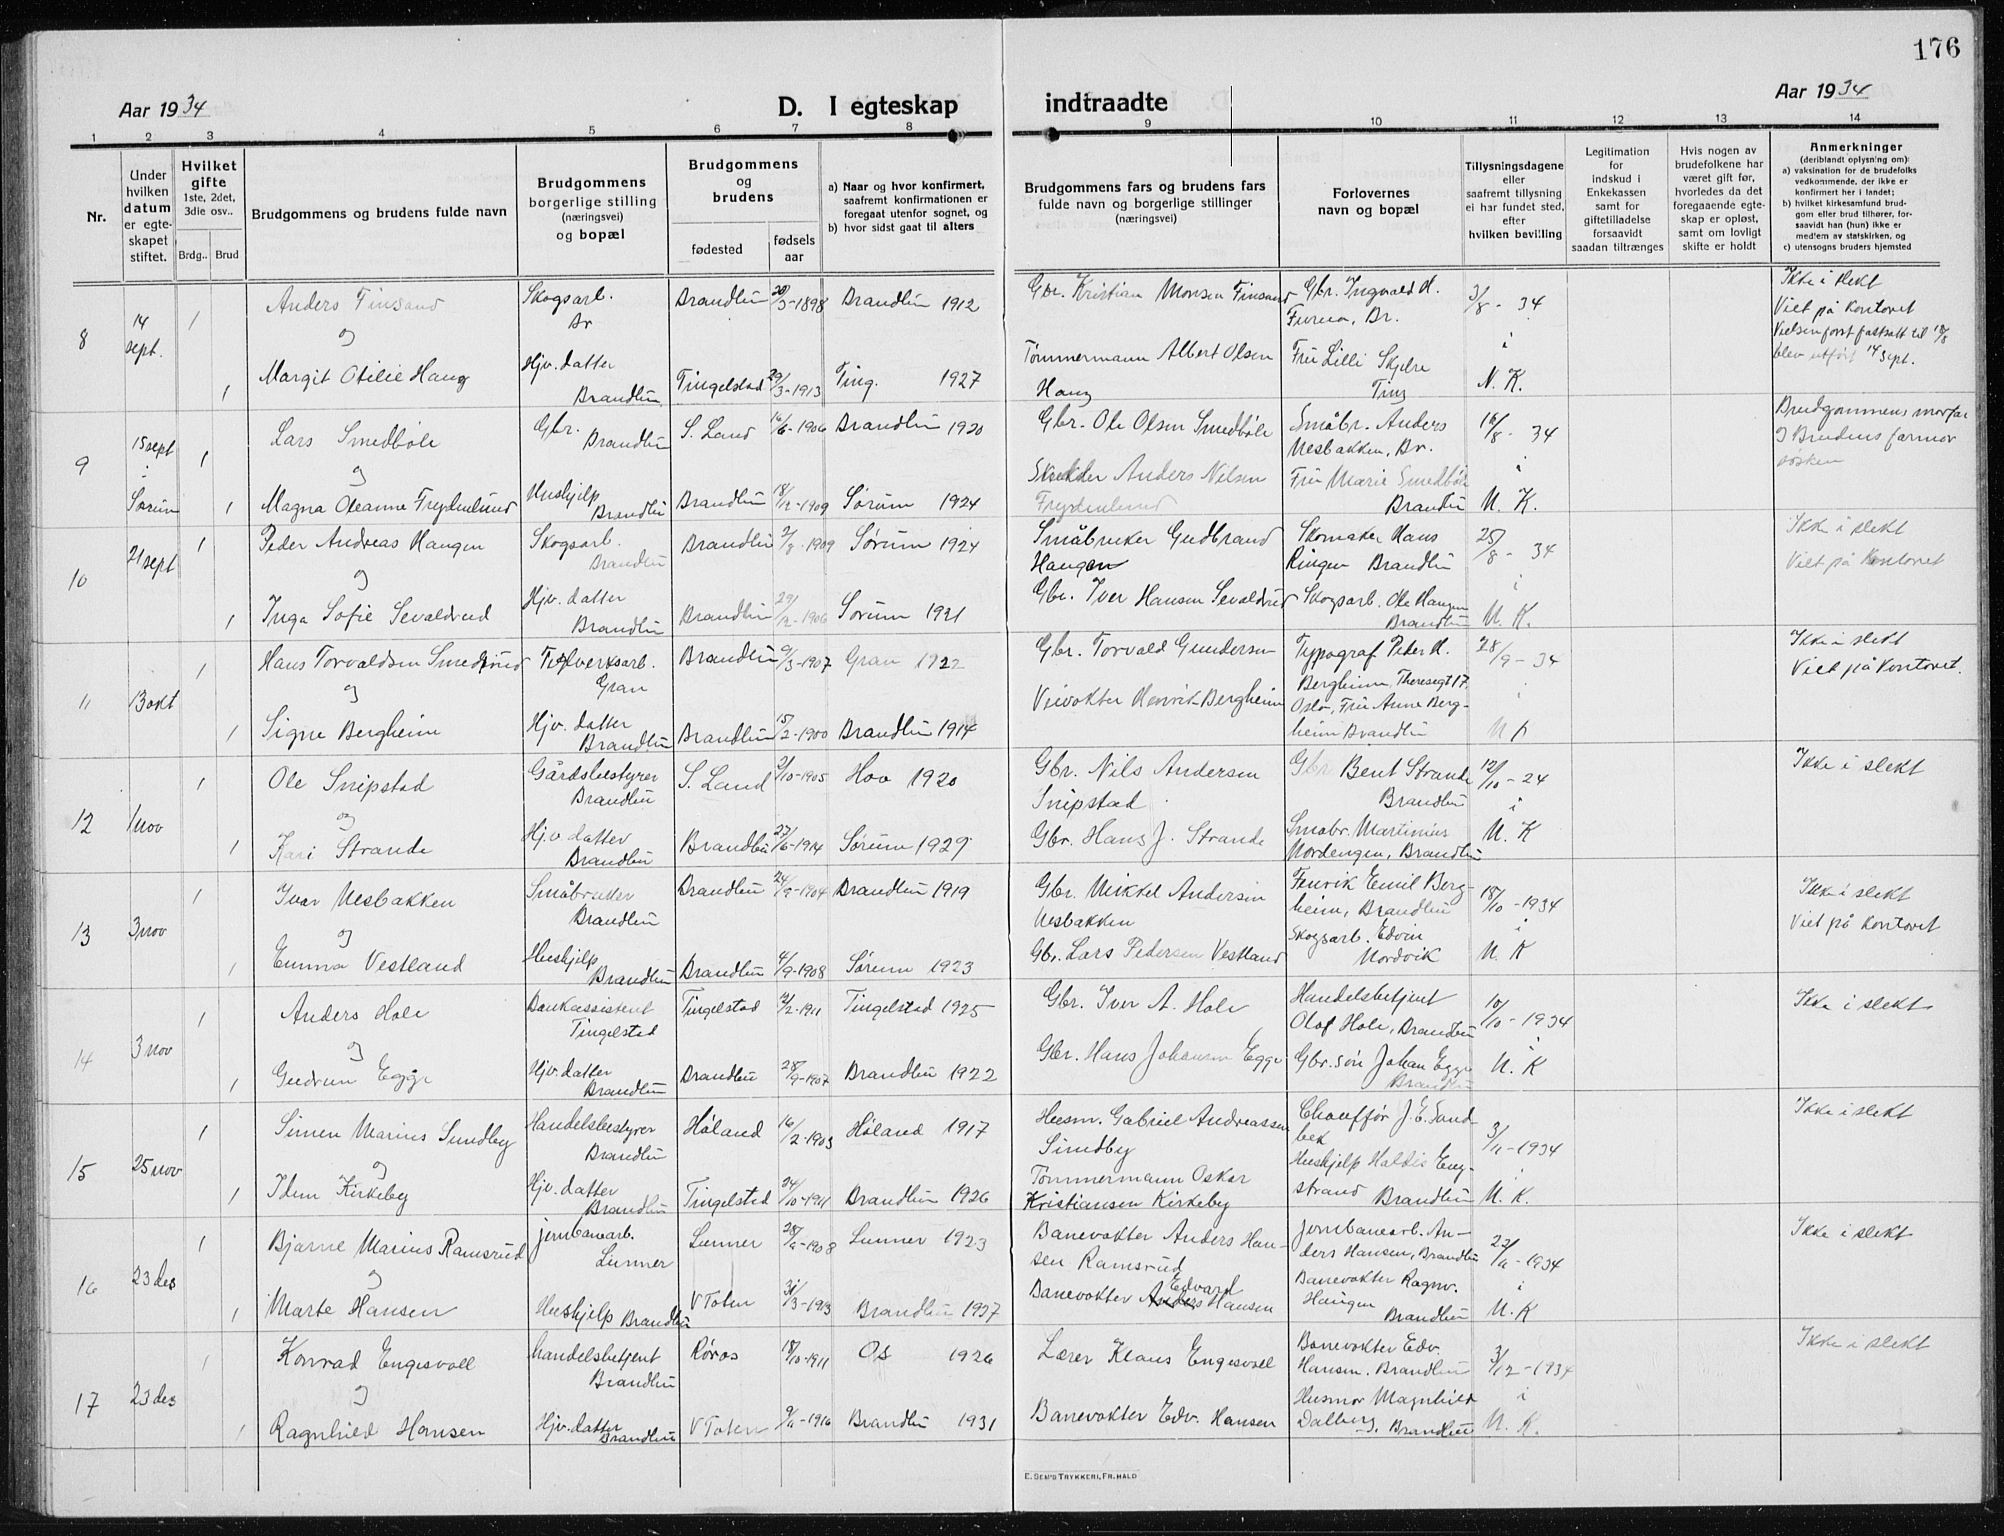 176
Aar 1934
D. I egteskap indtraadte
Aar 1934
1 2 3 4 5 6 7 8 9 10 11 12 13 14
Nr.
Under
hvilken
datum
er egte-
skapet
stiftet.
Hvilket
gifte
1ste, 2det,
3die osv..
Brdg.. Brud
Brudgommens og brudens fulde navn
Brudgommens
borgerlige stilling
(næringsvei)
og bopæl
Brudgommens
og
brudens
fødested
fødsels
aar
a) Naar og hvor konfirmert,
saafremt konfirmationen er
foregaat utenfor sognet, og
b) hvor sidst gaat til alters
Brudgommens fars og brudens fars
fulde navn og borgerlige stillinger
(næringsvei)
Forlovernes
navn og bopæl
Tillysningsdagene
eller
saafremt tillysning
ei har fundet sted,
efter
hvilken bevilling
Legitimation
for
indskud i
Enkekassen
samt for
giftetilladelse
forsaavidt
saadan tiltrænges
Hvis nogen av
brudefolkene har
været gift før,
hvorledes da det
foregaaende egte-
skap er opløst,
samt om lovligt
skifte er holdt
Anmerkninger
(deriblandt oplysning om):
a) vaksination for de brudefolks
vedkommende, der ikke er
konfirmert her i landet;
b) hvilket kirkesamfund brud-
gom eller brud tilhører, for-
saavidt han (hun) ikke er
medlem av statskirken, og
c) utensogns bruders hjemsted
8
14
sept.
1
Anders Finsand
og
Skogsarb.
Br
Brandbu 20/3-1898
Brandbu 1912
Gbr. Kristian Monsen Finsand
Gbr. Ingvald H.
Furua, Br.
3/8 - 34
i
N. K.
Ikke i slekt
Viet på kontoret
Vielsen først fastsatt til 18/8
blev utført 14 sept.
1
Margit Otilie Haug
Hjv. datter
Brandbu
Tingelstad 29/3-1913
Ting. 1927
Tømmermann Albert Olsen
Haug
Fru Lilli Skjelre
Ting
9
15 sept
i
Sørum
1
Lars Smedbøle
og
Gbr.
Brandbu
S. Land 16/6-1906
Brandbu 1920
Gbr. Ole Olsen Smedbøle
Småbr. Anders
Nesbakken, Br.
16/8 - 34
i
N. K.
Brudgommens morfar
og Brudens farmor
søsken
1
Magna Oleanne Frydenlund
Hushjelp
Brandbu
Brandbu 18/12-1909
Sørum 1924
Skredder Anders Nilsen
Frydenlund
Fru Marie Smedbøle
Brandbu
10
21 sept
1
Peder Andreas Haugen
og
Skogsarb.
Brandbu
Brandbu 2/8-1909
Sørum 1924
Småbruker Gudbrand
Haugen
Skomaker Hans
Ringen Brandbu
25/8 - 34
i
N. K.
Ikke i slekt
Viet på kontoret
1
Inga Sofie Sevaldrud
Hjv. datter
Brandbu
Brandbu 29/12-1906
Sørum 1921
Gbr. Iver Hansen Sevaldrud
Skogsarb. Ole Haugen
Brandbu
11
13 okt
1
Hans Torvaldsen Smedsrud
og
Teglverksarb.
Gran
Brandbu 9/3-1907
Gran 1922
Gbr. Torvald Gundersen
Typograf Peder H.
Bergheim, Theresegt 17
Oslo, Fru Anne Berg-
heim Brandbu
28/9 - 34
N K
Ikke i slekt
Viet på kontoret.
1
Signe Bergheim
Hjv. datter
Brandbu
Brandbu 15/2-1900
Brandbu 1914
Veivokter Henrik Bergheim
12
1 nov
1
Ole Snipstad
og
Gårdsbestyrer
Brandbu
S. Land 2/10-1905
Hov 1920
Gbr. Nils Andersen
Snipstad
Gbr Bent Strande
Brandbu
12/10 - 24
i
N. K
Ikke i slekt
1
Kari Strande
Hjv. datter
Brandbu
Brandbu 27/6-1914
Sørum 1929
Gbr. Hans J. Strande
Småbr. Martinius
Nordengen, Brandbu
13
3 nov
1
Ivar Nesbakken
og
Småbruker
Brandbu
Brandbu 24/9-1904
Brandbu 1919
Gbr. Mikkel Andersen
Nesbakken
Fenrik Emil Berg-
heim, Brandbu
18/10 - 1934
i
N. K
Ikke i slekt
Viet på kontoret
1
Emma Vestland
Hushjelp
Brandbu
Brandbu 4/9-1908
Sørum 1923
Gbr. Lars Pedersen Vestland
Skogsarb. Edvin
Nordvik
14
3 nov
1
Anders Hole
og
Bankassistent
Tingelstad
Tingelstad 12/2-1911
Tingelstad 1925
Gbr. Iver A. Hole
Handelsbetjent
Olaf Hole, Brandbu
10/10 - 1934
i
N. K
Ikke i slekt
1
Gudrun Egge
Hjv. datter
Brandbu
Brandbu 28/9-1907
Brandbu 1922
Gbr. Hans Johansen Egge
Gbr. søn Johan Egge
Brandbu
15
25 nov
1
Simen Marius Sundby
og
Handelsbestyrer
Brandbu
Høland 16/2-1903
Høland 1917
Husm. Gabriel Andreassen
Sundby
Chauffør J. E. Sand-
bek
3/11 - 1934
i
N. K.
Ikke i slekt
1
Idun Kirkeby
Hjv. datter
Brandbu
Tingelstad 24/10-1911
Brandbu 1926
Tømmermann Oskar
Kristiansen Kirkeby
Hushjelp Haldis Eng-
strand Brandbu
16
23 des
1
Bjarne Marius Ramsrud
og
jernbanearb.
Lunner
Lunner 28/9-1908
Lunner 1923
Banevokter Anders Han-
sen Ramsrud
Jernbanearb. An-
ders Hansen, Brandbu
22/11 - 1934
i
N. K
Ikke i slekt
1
Marte Hansen
Hushjelp Brandbu
V Toten 31/3-1913
Brandbu 1927
Edvard
Banevokter Anders Hansen
Banevokter Ragnv.
Haugen
Brandbu
17
23 des
1
Konrad Engesvoll
og
Handelsbetjent
Brandbu
Røros 18/10-1911
Os 1926
Lærer Klaus Engesvoll
Banevokter Edv.
Hansen. Brandbu
3/12 - 1934
i
N. K.
Ikke i slekt
1
Ragnhild Hansen
Hjv. datter
Brandbu
V Toten 9/11-1916
Brandbu 1931
Banevokter Edv. Hansen
Husmor Magnhild
Dalberg, Brandbu
E. SEM'S TRYKKERI, FR. HALD